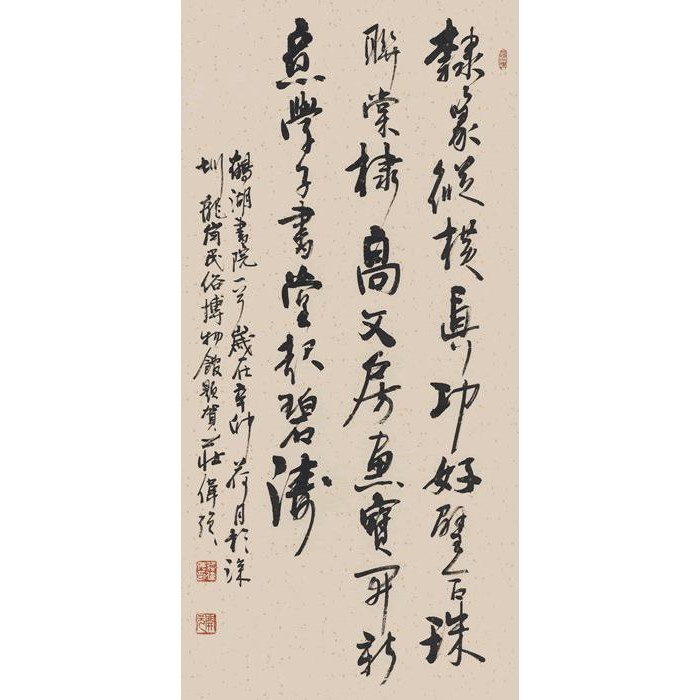 隸篆縱橫真功好璧合珠
聯棠棣高文房惠寶開新
意學子書堂起碧濤
鶴湖書院一 歲在辛卯荷月於深
圳龍崗民俗博物館題賀莊偉強